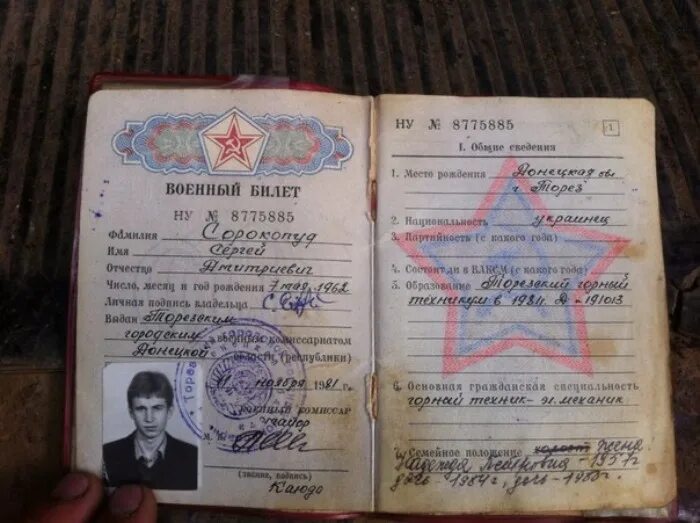 ВОЕННЫЙ БИЛЕТ
НУ № 8775885
Фамилия Сорокопуд
Имя Сергей
Отчество Дмитриевич
Число, месяц и год рождения 7 мая 1962
Личная подпись владельца
Выдан Торезским
городским военным комиссариатом
Донецкой области (республики)
11 ноября 1981 г.
Военный комиссар
майор
М.
(звание, подпись)
НУ № 8775885
1
I. Общие сведения
1. Место рождения Донецкая обл
г. Торез
2. Национальность украинец
3. Партийность (с какого года)
4. Состоит ли в ВЛКСМ (с какого года)
5. Образование Торезский горный
техникум в 1981г.
6. Основная гражданская специальность
горный техник-эл.механик
7. Семейное положение холост жена
Надежда 1957г
дочь 1984г, дочь